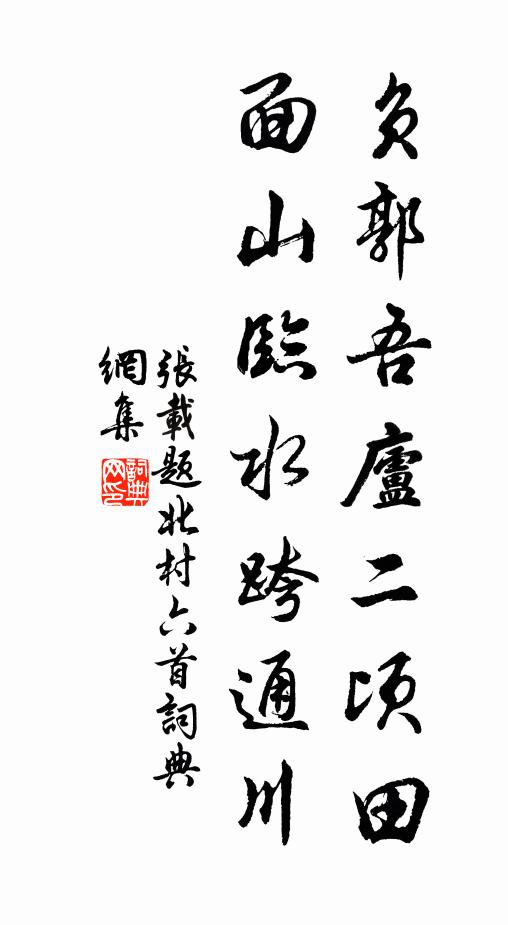 负郭吾廬二頃田
面山臨水跨通川
張載题北村六首詞典
網集
詞典
网印